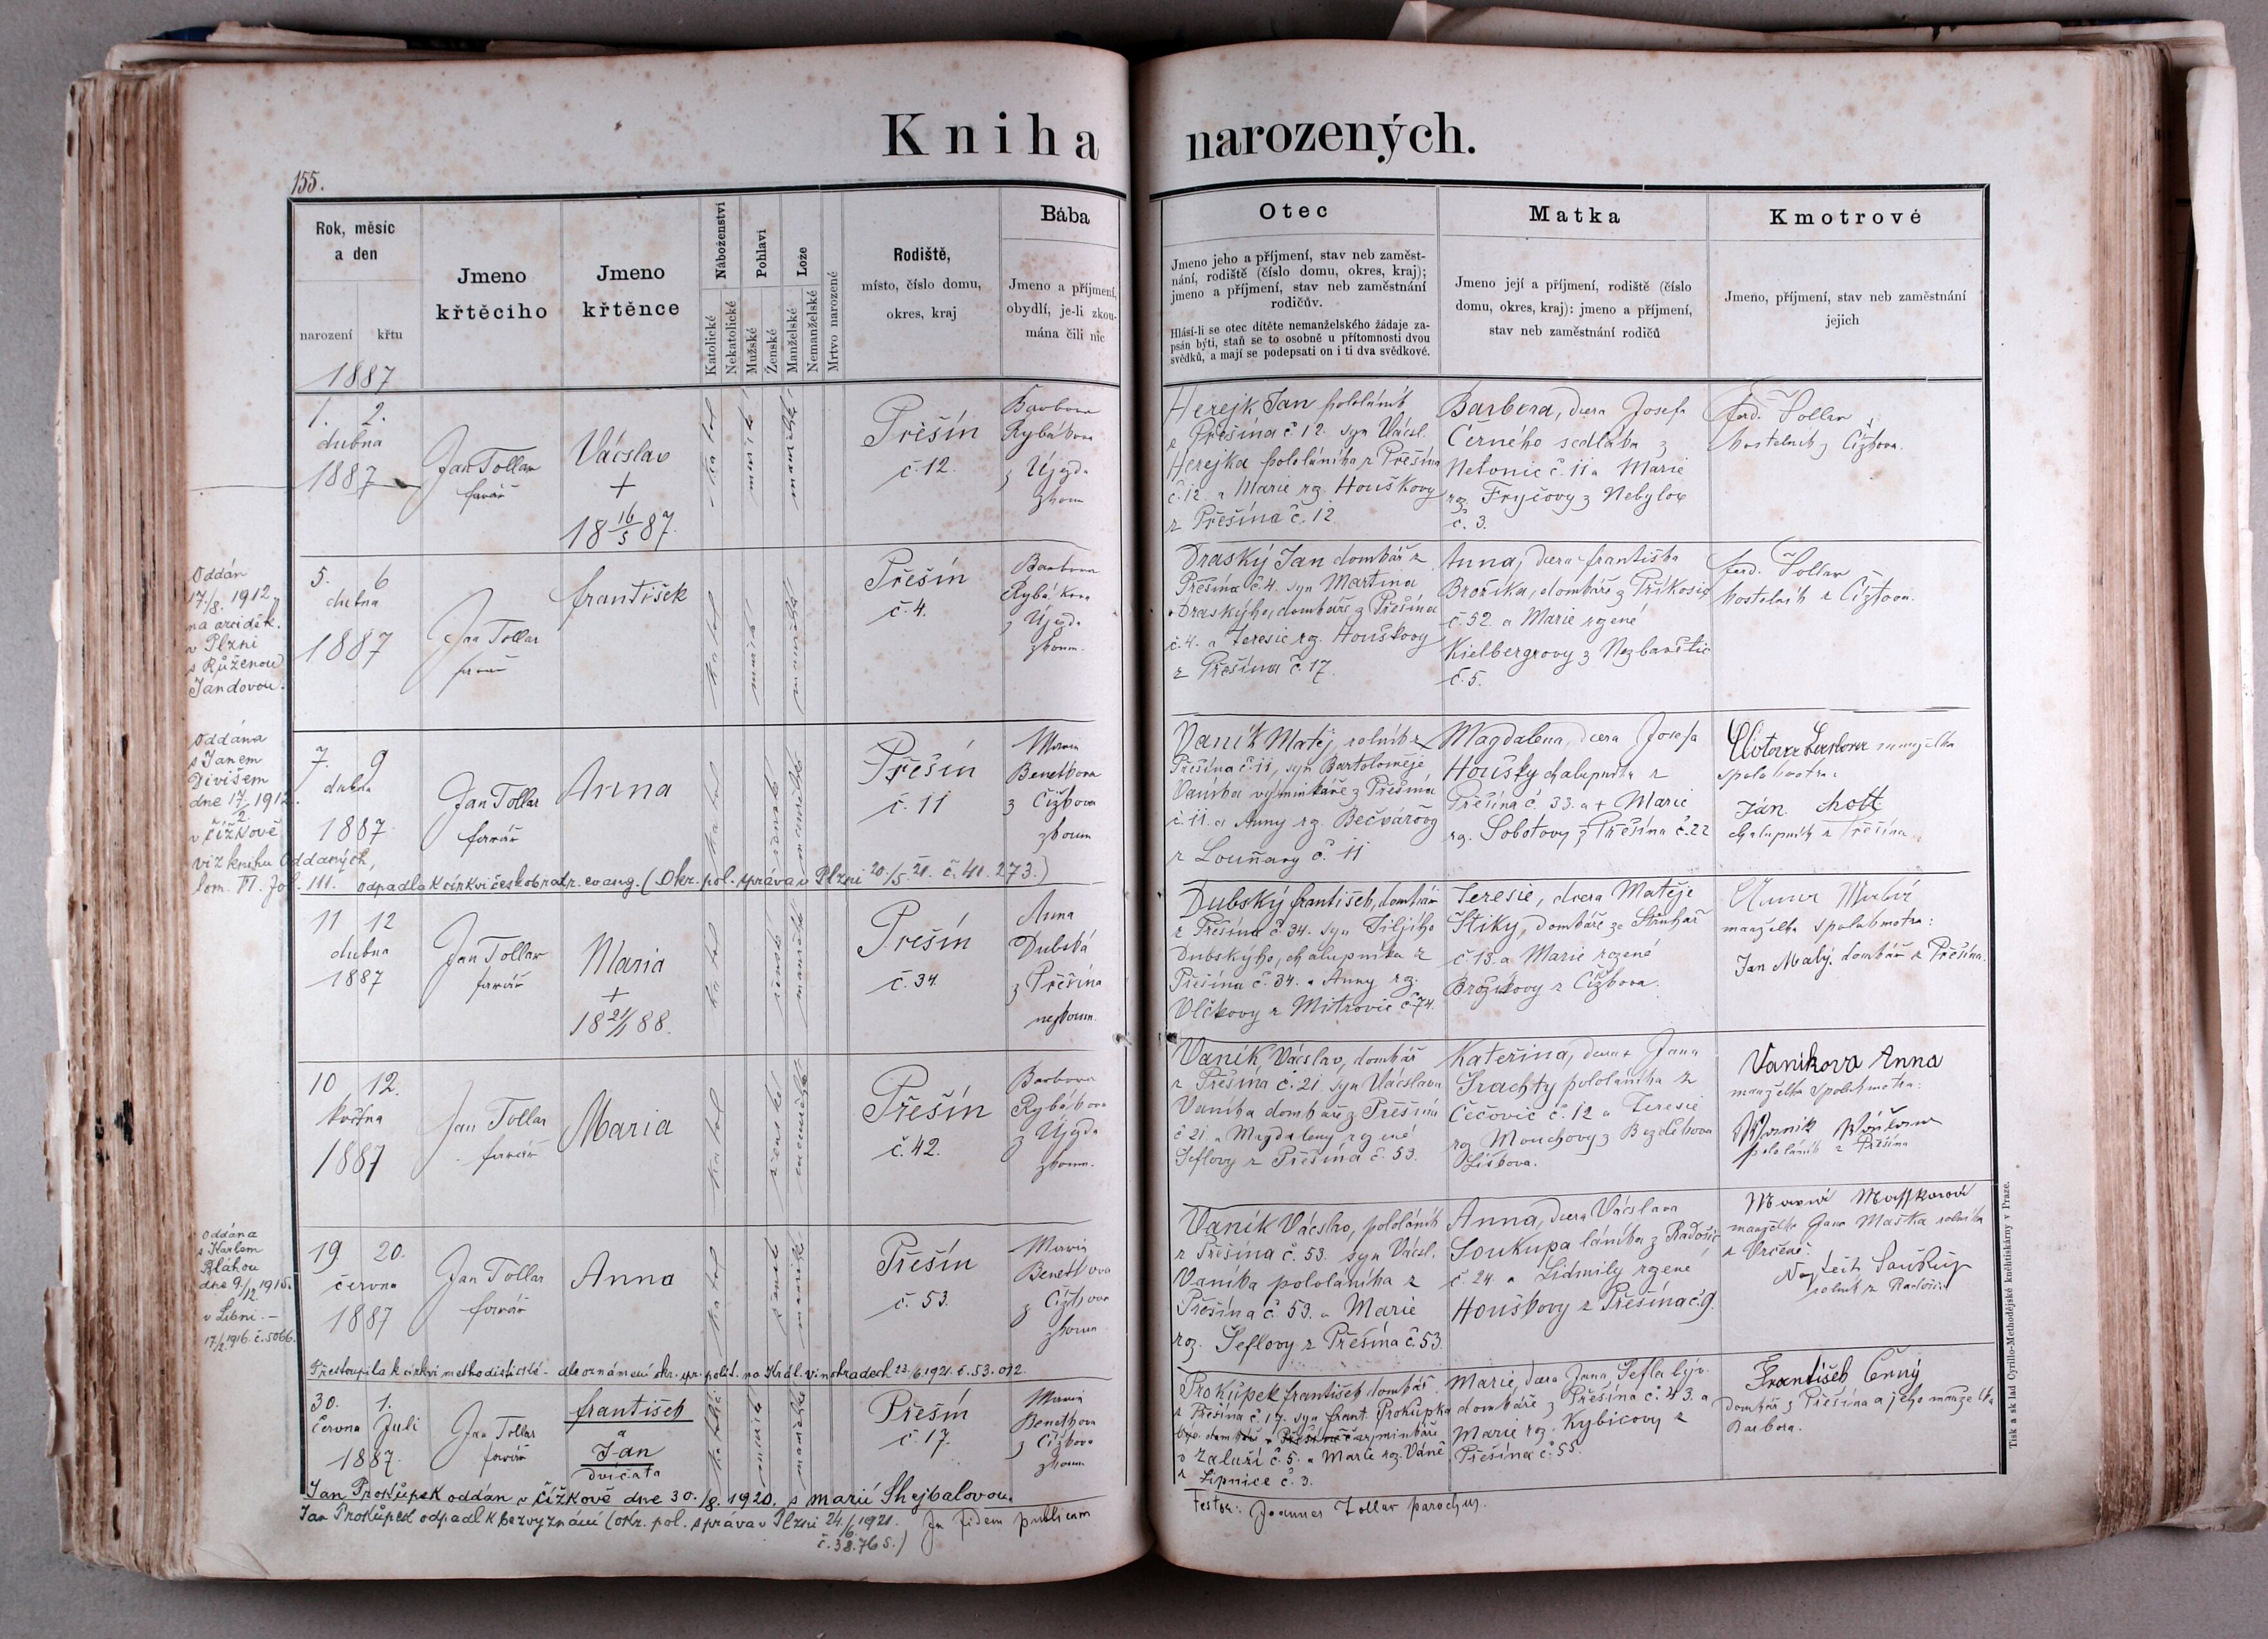 Kniha narozených.
155.
Rok, měsíc
a den
narození křtu
Jmeno
křtěcího
Jmeno
křtěnce
Náboženství
Katolické
Nekatolické
Pohlaví
Mužské
Ženské
Lože
Manželské
Nemanželské
Mrtvo narozené
Rodiště,
místo, číslo domu,
okres, kraj
Bába
Jmeno a příjmení,
obydlí, je-li zkou-
mána čili nic
Otec
Jmeno jeho a příjmení, stav neb zaměst-
nání, rodiště (číslo domu, okres, kraj);
jmeno a příjmení, stav neb zaměstnání
rodičův.
Hlásí-li se otec dítěte nemanželského žádaje za-
psán býti, staň se to osobné u přítomnosti dvou
svědků, a mají se podepsati on i ti dva svědkové.
Matka
Jmeno její a příjmení, rodiště (číslo
domu, okres, kraj): jmeno a příjmení,
stav neb zaměstnání rodičů
Kmotrové
Jmeno, příjmení, stav neb zaměstnání
jejich
1887
1. 2.
dubna
1887
Jan Tollar
farář
Vácslav
+
18 16/5 87.
Přešín
č. 12.
Barbora
Rybákova
z Újezda
zkoum
Herejk Jan pololáník
z Přešína č 12. syn Vácsl.
Herejka pololáníka z Přešína
č. 12. a Marie rz. Houškovy
z Přešína č. 12.
Barbora, dcera Josefa
Černého sedláka z
Netonic č. 11 a Marie
rz. Fryčovy z Nebylov
č. 3.
Ferd. Tollar
kostelník z Čížkova.
Oddán
17./8. 1912
na arciděk.
v Plzni
s Růženou
Jandovou.
5. 6
dubna
1887
Jan Tollar
farář
František
Přešín
č. 4.
Barbora
Rybákova
z Újezda
zkoum.
Draský Jan domkář z
Přešína č 4. syn Martina
Draskýho, domkáře z Přešína
č. 4. a Teresie rz. Houškovy
z Přešína č. 17.
Anna, dcera Františka
Brožíka, domkáře z Příkosic
č. 52. a Marie rzené
Kielbergrovy z Nezbavětic
č. 5.
Ferd. Tollar
kostelník z Čížkova.
Oddána
s Janem
Divišem
dne 17/2. 1912.
v Čížkově
viz knihu Oddaných,
tom. VI. fol. 111.
7. 9
dubna
1887
Jan Tollar
farář
Anna
Přešín
č. 11
Marie
Benetkova
z Čížkova
zkoum
Vaník Matěj, rolník z
Přešína č. 11, syn Bartoloměje
Vaníka výminkáře z Přešína
č. 11. a Anny rz. Bečvářovy
z Louňany č. 11
Magdalena, dcera Josefa
Houšky chalupníka z
Přešína č. 33. a + Marie
rz. Sobotovy z Přešína č. 22
manželka
spolukmotra:
Ján chott
chalupník z Přešína
odpadla k církvi českobratr. evang. (Okr. pol. správa v Plzni 20./5. 21. č. 41.273.)
11 12
dubna
1887
Jan Tollar
farář
Maria
+
18 21/1 88.
Přešín
č. 34.
Anna
Dubská
z Přešína
nezkoum.
Dubský František, domkář
z Přešína č. 34. syn Jiljího
Dubskýho, chalupníka z
Přešína č. 34. a Anny rz.
Vlčkovy z Mitrovic č. 74.
Teresie, dcera Matěje
Štiky, domkáře ze Struhař
č. 13. a Marie rzené
Brožkovy z Čížkova.
Anna Malá
manželka spolukmotra:
Jan Malý domkář z Přešína.
10 12.
května
1887
Jan Tollar
farář
Maria
Přešín
č. 42.
Barbora
Rybákova
z Újezda
zkoum.
Vaník, Vácslav, domkář
z Přešína č. 21 syn Vácslava
Vaníka domkáře z Přešína
č 21. a Magdaleny rzené
Šeflovy z Přešína č. 53.
Kateřina, dcera Jana
Trachty pololáníka z
Čečovic č. 12 a Teresie
rz Mouchovy z Bezděkova
Liškova.
Vanikova Anna
manželka spolukmotra:
pololáník z Přešína
Oddána
s Karlem
Bláhou
dne 9./12. 1915.
v Libni. —
17/2. 1916. č. 5066.
19 20.
června
1887
Jan Tollar
farář
Anna
Přešín
č. 53.
Marie
Benetkova
z Čížkova
zkoum
Vaník Vácslav, pololáník
z Přešína č. 53. syn Vácsl.
Vaníka pololáníka z
Přešína č. 53. a Marie
roz. Šeflovy z Přešína č. 53
Anna, dcera Vácslava
Soukupa láníka z Radošic
č. 24. a Lidmily rzené
Houškovy z Přešína č. 9.
Marie Maškova
manželka Jana Maška rolníka
z Vrčeně.
Vojtěch Saukup
rolník z Radošic
Přestoupila k církvi methodistické - dle oznámení okr. spr. polit. na Král. Vinohradech 23./6. 1921. č. 53.092.
30. 1.
června Juli
1887.
Jan Tollar
farář
František
a
Jan
dvíčata
Přešín
č. 17.
Marie
Benetkova
z Čížkova
zkoum
Prokůpek František domkář
z Přešína č. 17. syn Frant. Prokůpka
výminkáře
v Zaluží č. 5. a Marie roz. Váně
z Lipnice č. 3.
Marie, dcera Jana Šefla býv.
domkáře z Přešína č. 43. a
Marie roz. Kybicovy z
Přešína č. 55.
František Černý
domkář z Přešína a jeho manželka
Barbora.
Jan Prokůpek oddán v Čížkově dne 30./8. 1920. s Marií Shejbalovou.
Jan Prokůpek odpadl k bezvyznání (okr. pol. správa v Plzni 24./6. 1921.
č. 38.765.)
In fidem publicam
testor: Joannes Tollar parochus.
Tisk a sklad Cyrillo-Methodějské knihtiskárny v Praze.